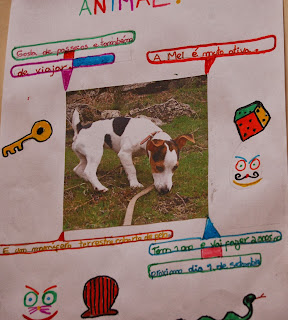 ANIMAL!
Gosta de passear e também
de viajar.
A Mel é muito ativa.
É um mamífero terrestre
Tem 1 ano e vai fazer 2 anos no
próximo dia 9 de setembro